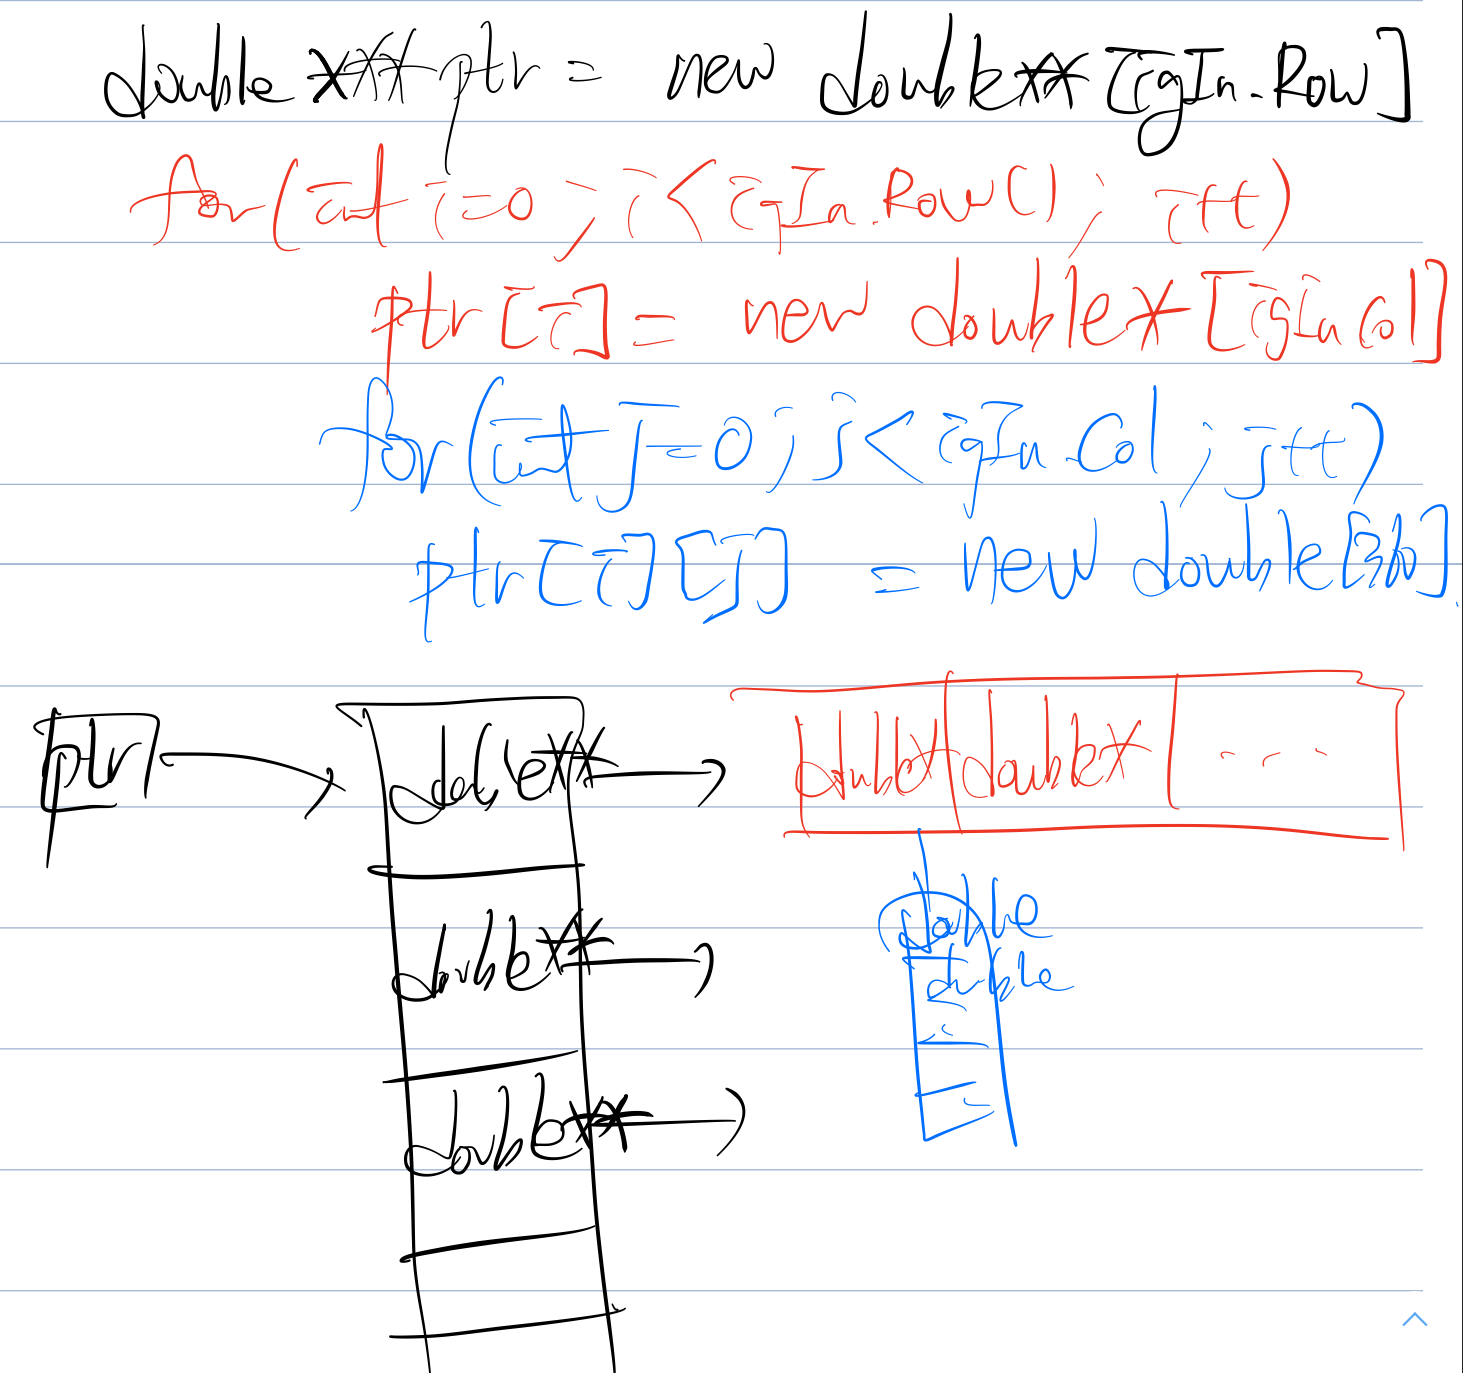 double *** ptr = new double** [igIn.Row]
for(int i=0 ; i < igIn.Row() ; i++)
ptr[i] = new double* [igIn Col]
for(int j=0 ; j < igIn.Col ; j++)
ptr[i][j] = new double[360].
ptr
double**
double* double* ...
double**
double**
double
double